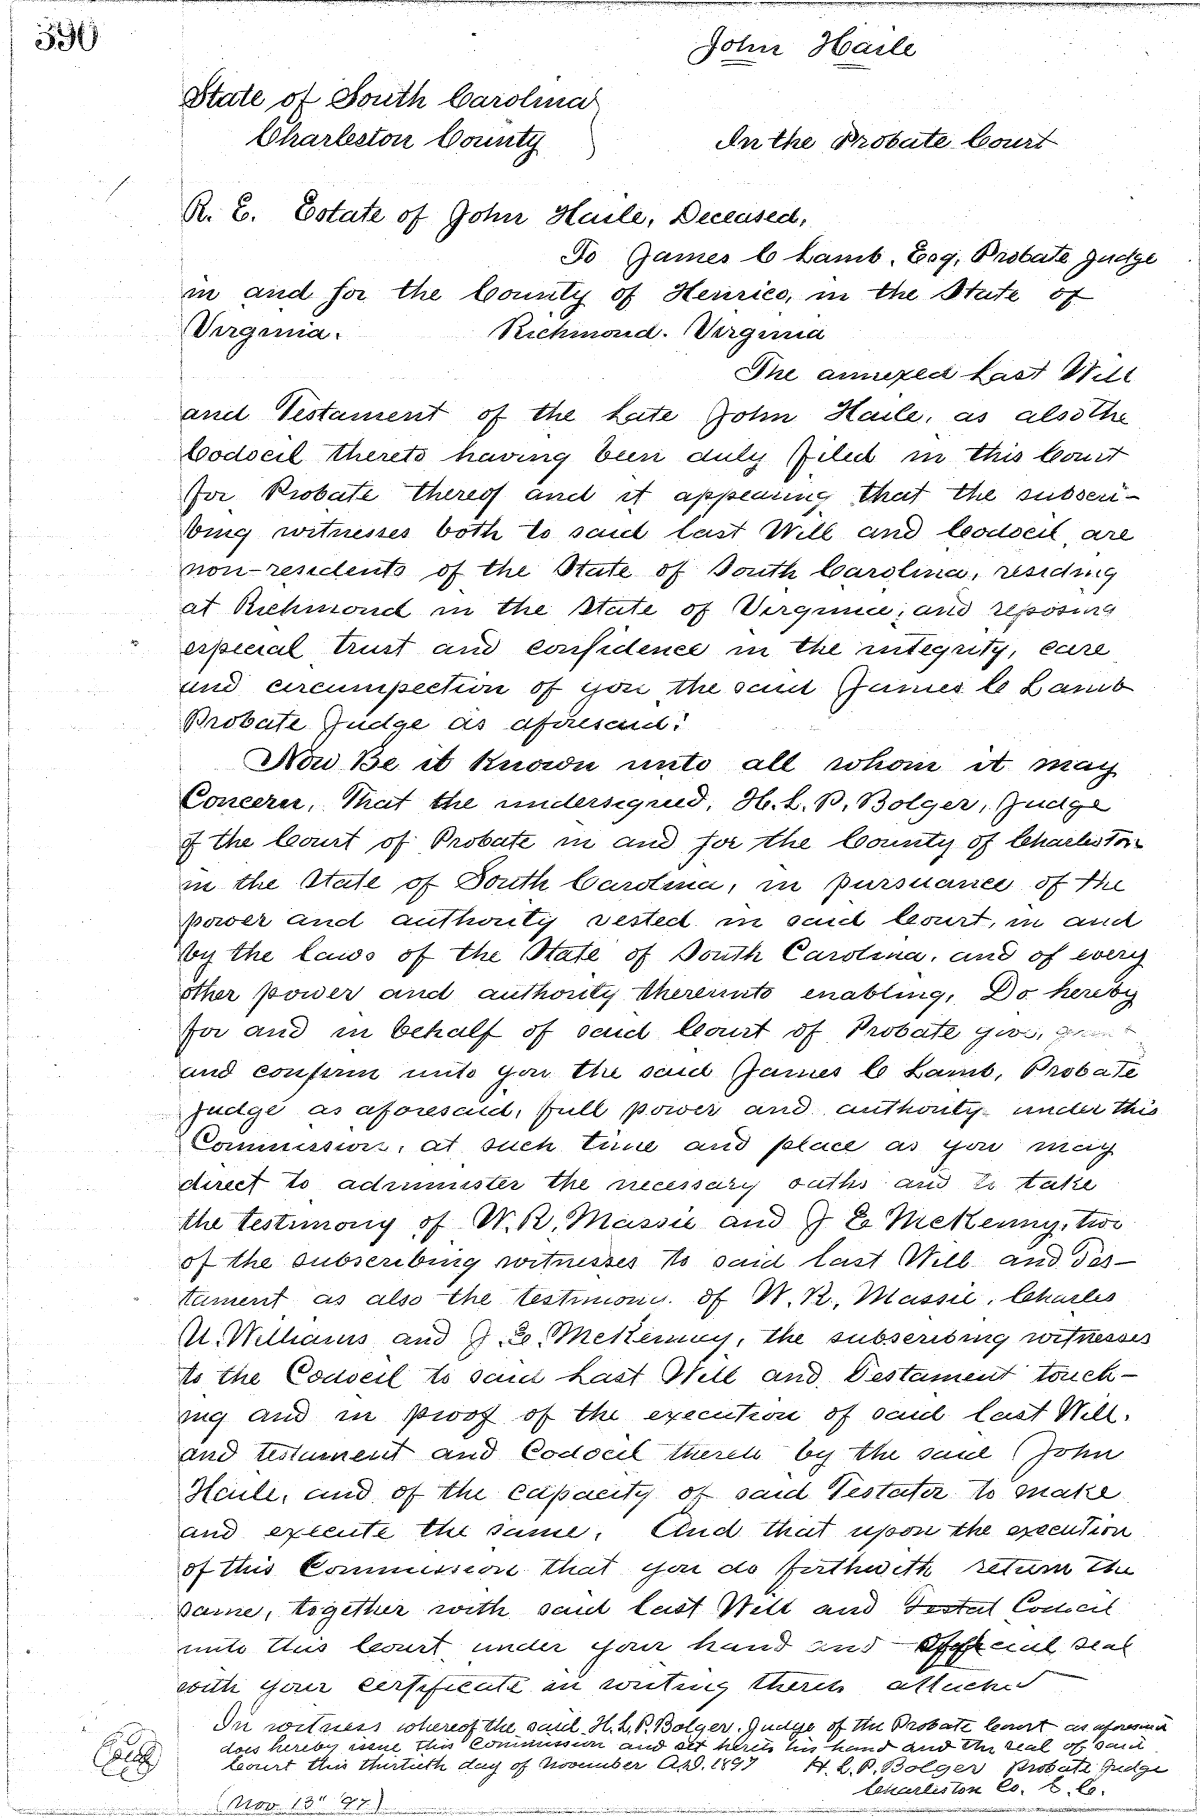 390
John Haile
State of South Carolina
Charleston County
In the Probate Court
R. E. Estate of John Haile, Deceased,
To James C Lamb, Esq, Probate Judge
in and for the County of Henrico, in the State of
Virginia. Richmond. Virginia
The annexed Last Will
and Testament of the Late John Haile, as also the
Codocil thereto having been duly filed in this Court
for Probate thereof and it appearing that the subscri-
bing witnesses both to said last Will and Codocil are
non-residents of the State of South Carolina, residing
at Richmond in the State of Virginia; and reposing
especial trust and confidence in the integrity, care
and circumpection of you the said James C Lamb
Probate Judge as aforesaid:
Now Be it known unto all whom it may
Concern, That the undersigned, H. L. P. Bolger, Judge
of the Court of Probate in and for the County of Charleston
in the State of South Carolina, in pursuance of the
power and authority vested in said Court, in and
by the laws of the State of South Carolina, and of every
other power and authority thereunto enabling, Do hereby
for and in behalf of said Court of Probate give, grant
and confirm unto you the said James C Lamb, Probate
Judge as aforesaid, full power and authority under this
Commission, at such time and place as you may
direct to administer the necessary oaths and to take
the testimony of W. R. Massie and J E McKenny, two
of the subscribing witnesses to said last Will and Tes-
tament as also the testimony of W. R. Massie, Charles
U. Williams and J. E. McKenney, the subscribing witnesses
to the Codocil to said Last Will and Testament touch-
ing and in proof of the execution of said last Will.
and testament and Codocil thereto by the said John
Haile, and of the capacity of said Testator to make
and execute the same. And that upon the execution
of this Commission that you do forthwith return the
same, together with said last Will and Testat Codocil
unto this Court under your hand and official seal
with your certificate in writing thereto attached
In witness whereof the said H. L. P. Bolger, Judge of the Probate Court as aforesaid
does hereby issue this Commission and set hereto his hand and the seal of said
Court this thirtieth day of November A.D. 1897 H. L. P. Bolger Probate Judge
Charleston Co. S. C.
(Nov 13" 97)